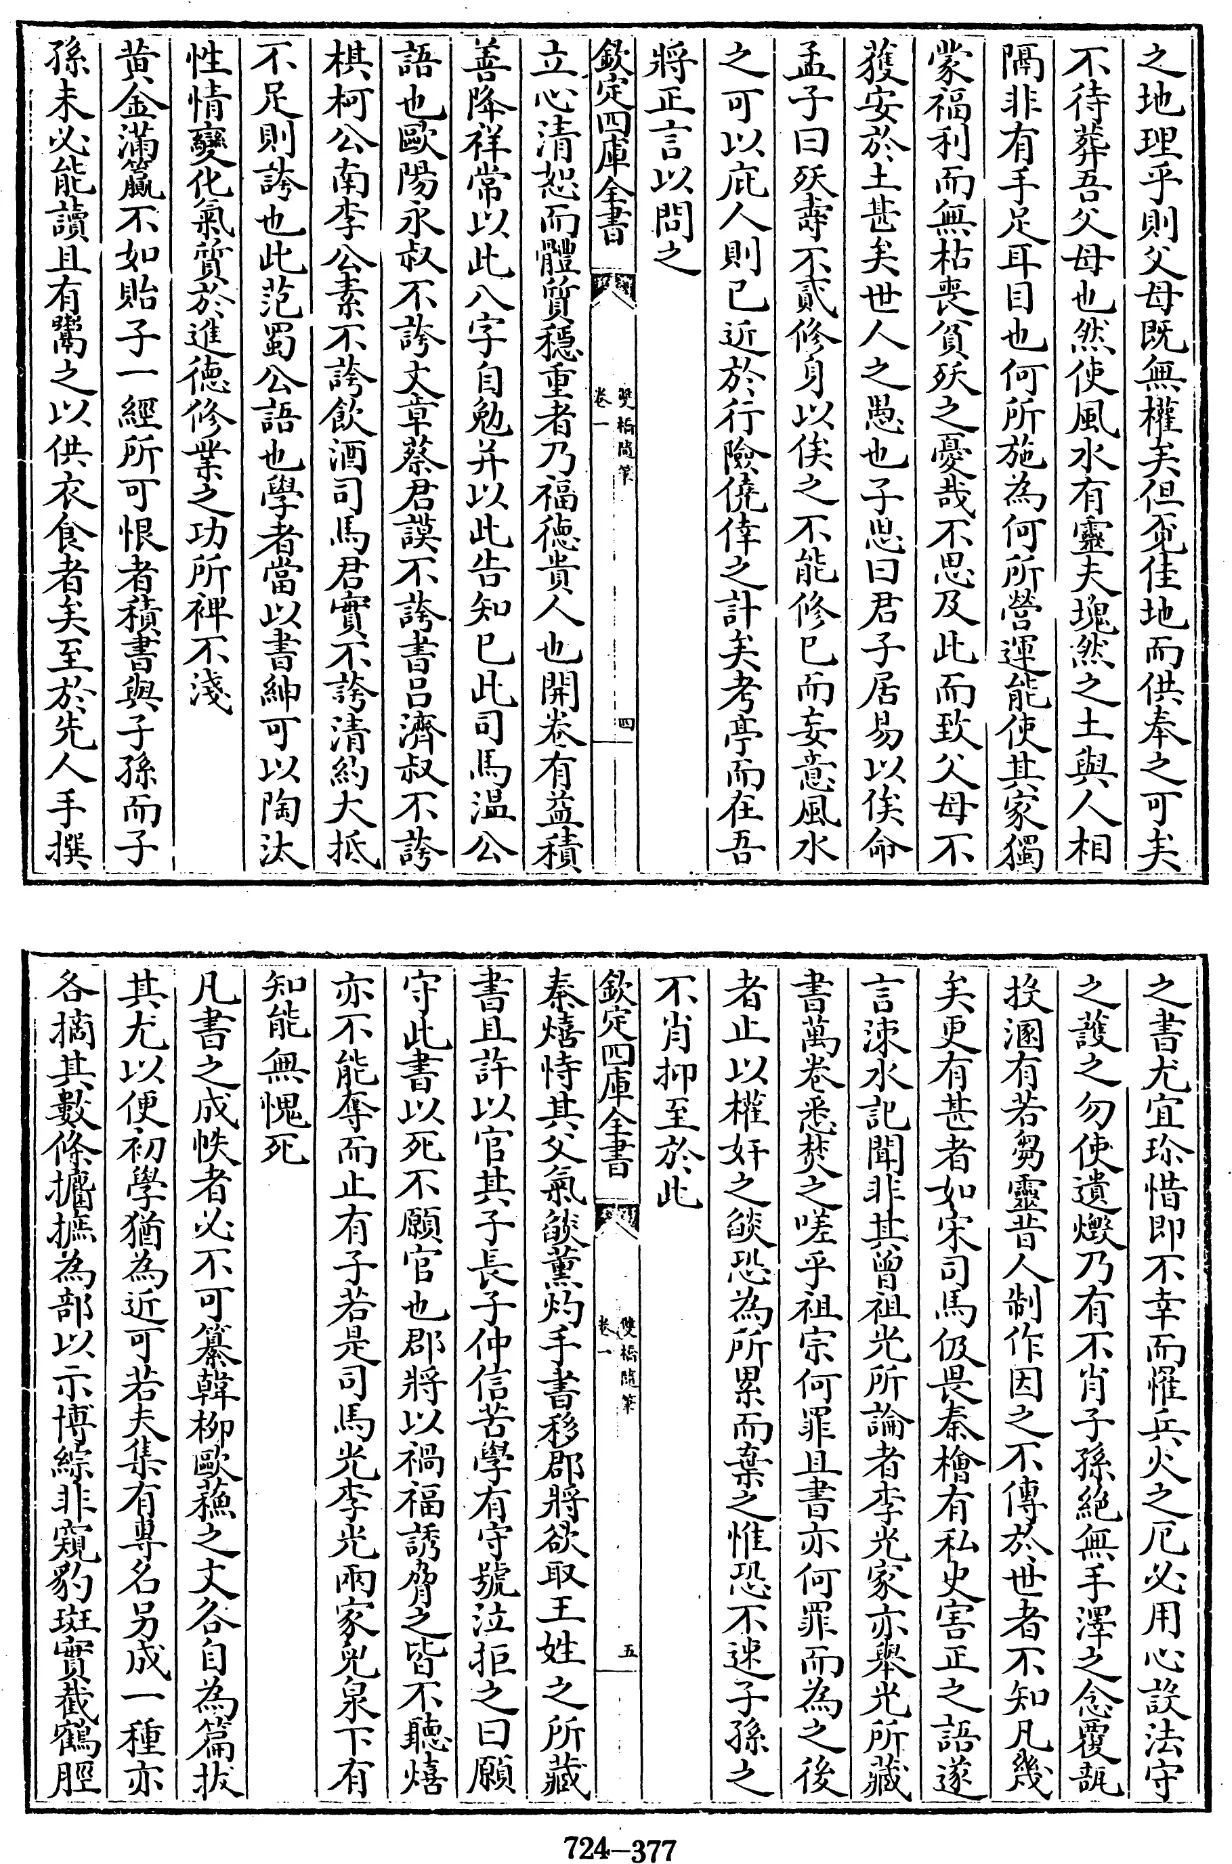 之地理乎則父母既無權矣但覔佳地而供奉之可矣
不待葬吾父母也然使風水有靈夫塊然之土與人相
隔非有手足耳目也何所施為何所營運能使其家獨
蒙福利而無枯喪貧殀之憂哉不思及此而致父母不
獲安於土甚矣世人之愚也子思曰君子居易以俟命
孟子曰殀壽不貳修身以俟之不能修已而妄意風水
之可以庇人則已近於行險僥倖之計矣考亭而在吾
將正言以問之
欽定四庫全書
雙橋隨筆
卷一
四
立心清恕而體質穩重者乃福德貴人也開卷有益積
善降祥常以此八字自勉并以此告知已此司馬温公
語也歐陽永叔不誇文章蔡君謨不誇書吕濟叔不誇
棋柯公南李公素不誇飲酒司馬君實不誇清約大抵
不足則誇也此范蜀公語也學者當以書紳可以陶汰
性情變化氣質於進德修業之功所裨不淺
黄金滿籯不如貽子一經所可恨者積書與子孫而子
孫未必能讀且有鬻之以供衣食者矣至於先人手撰
之書尤宜珍惜即不幸而罹兵火之厄必用心設法守
之護之勿使遺燬乃有不肖子孫絶無手澤之念覆瓿
投溷有若芻靈昔人制作因之不傳於世者不知凡幾
矣更有甚者如宋司馬伋畏秦檜有私史害正之語遂
言涑水記聞非其曾祖光所論者李光家亦舉光所藏
書萬卷悉焚之嗟乎祖宗何罪且書亦何罪而為之後
者止以權奸之燄恐為所累而棄之惟恐不速子孫之
不肖抑至於此
欽定四庫全書
雙橋隨筆
卷一
五
秦熺恃其父氣燄薰灼手書移郡將欲取王姓之所藏
書且許以官其子長子仲信苦學有守號泣拒之曰願
守此書以死不願官也郡將以禍福誘脅之皆不聽熺
亦不能奪而止有子若是司馬光李光兩家兒泉下有
知能無愧死
凡書之成帙者必不可纂韓柳歐蘓之文各自為篇拔
其尤以便初學猶為近可若夫集有專名另成一種亦
各摘其數條攟摭為部以示博綜非窺豹斑實截鶴脛
724—377